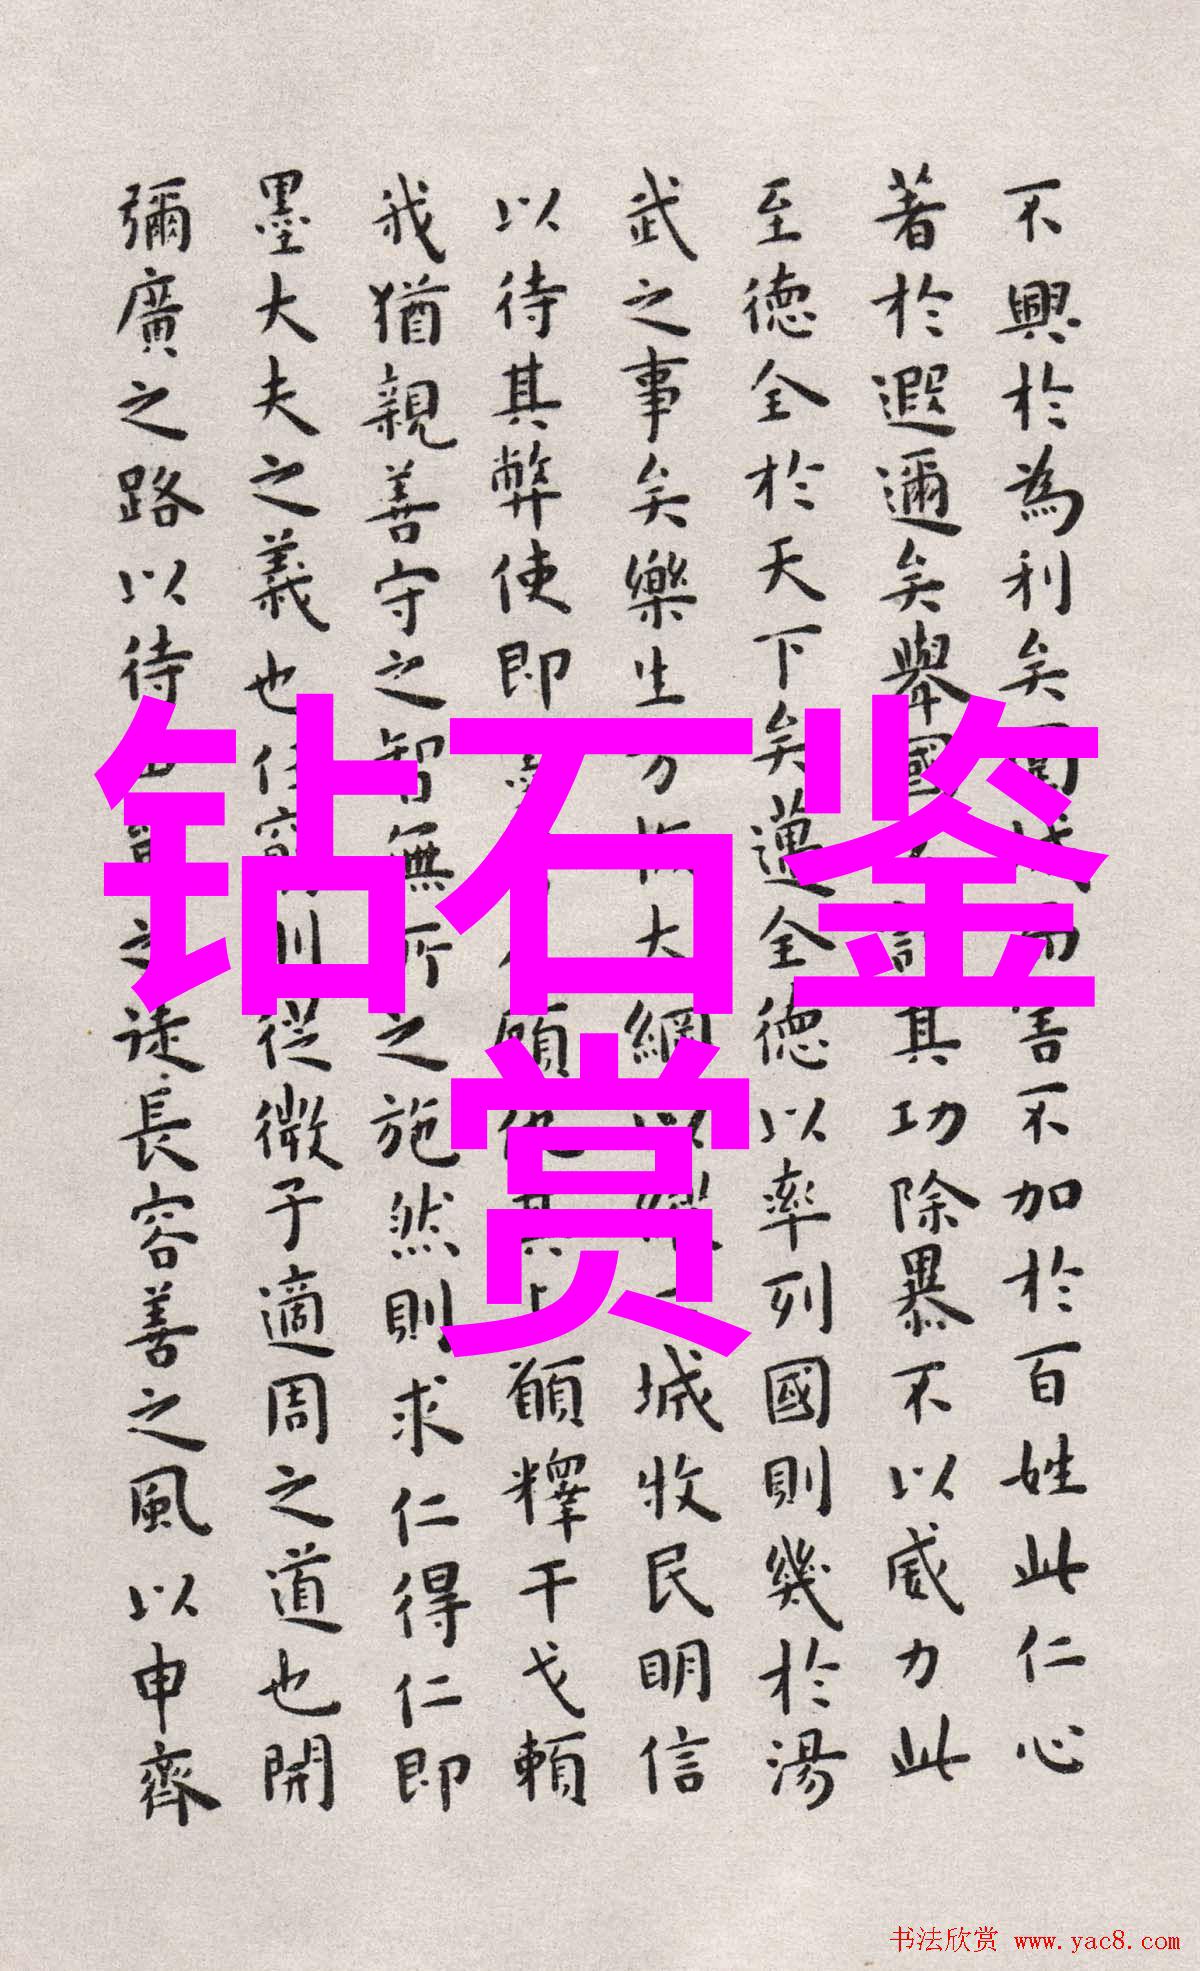 不興於為利矣圍城而害不加於百姓此仁心
著於遐邇矣舉國其功除暴不以威力此
至德全於天下矣邁全德以率列國則幾於湯
武之事矣樂生方恢大綱以城收民明信
以待其弊使即顧仇其上願釋干戈賴
我猶親善守之智無所之施然則求仁得仁即
墨大夫之義也任窮則從微子適周之道也開
彌廣之路以待之徒長容善之風以申齊
钻石鉴
赏
书法欣赏 www.yac8.com